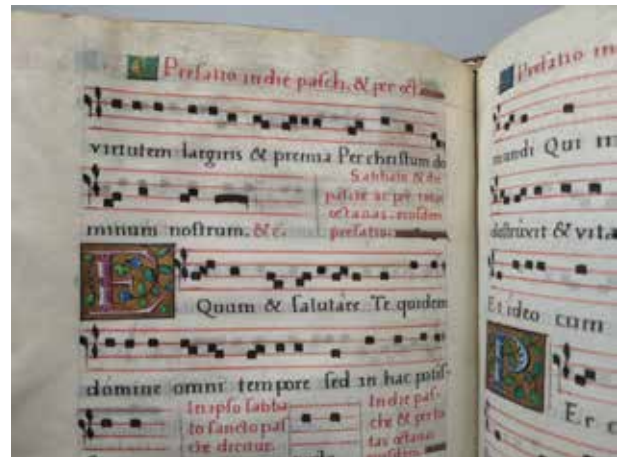 Prefatio in die pasch. & per octa
virtutem largiris & premia Per christum do
Sabbato & die
pasce ac per totas
octanas. eiusdem
prefatio.
minum nostrum. &c.
EQuum & salutare Te quidem
domine omni tempore sed in hac potis-
In ipso sabba
to sancto pas
che dicitur.
In die pas-
che & per to
tas octanas
Prefatio in
mundi Qui m
destruxit & vita
Et ideo cum
P
Er o